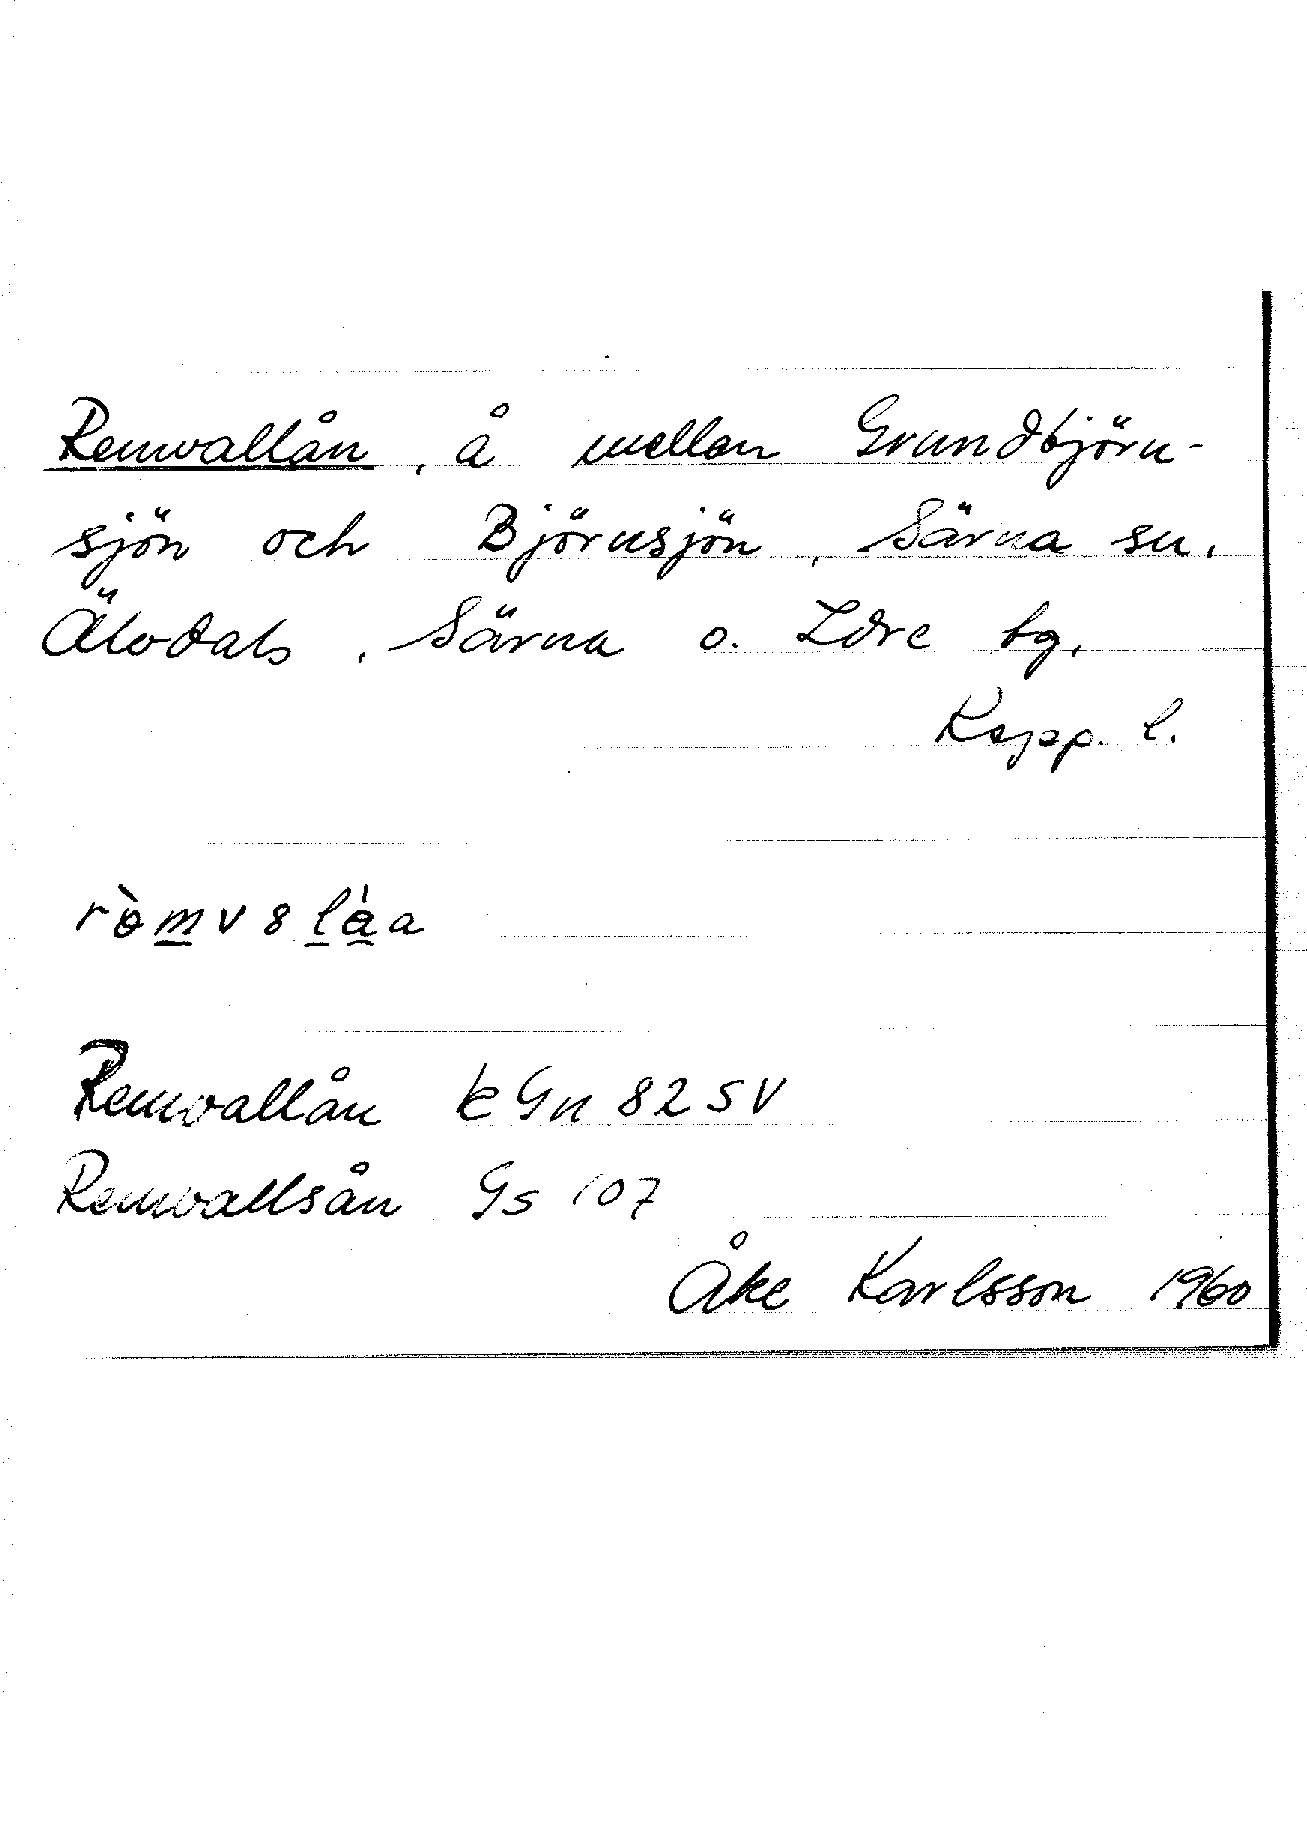 Remvallån, å mellan Grundbjörn-
sjön och Björnsjön, Särna sn.
Älvdals, Särna o. Idre tg.
Kopp. l.
rè̱m̱v8ḻá̱a
Remvallån k Gn 82 SV
Remvallsån Gs 107
Åke Karlsson 1960